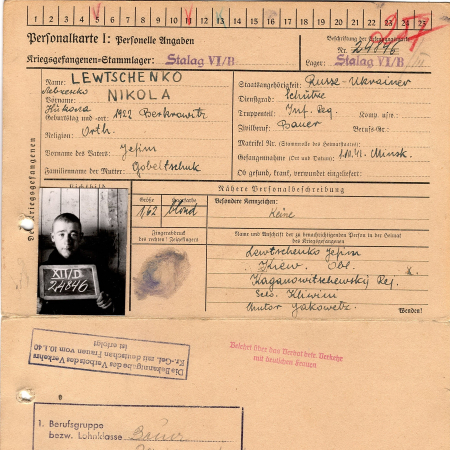 1 2 3 4 5 6 7 8 9 10 11 12 13 14 15 16 17 18 19 20 21 22 23 24 25
Personalkarte I: Personelle Angaben
Beschriftung der Erkennungsmarke
Kriegsgefangenen-Stammlager: Stalag VI/B
Nr. 24846
Lager: Stalag VI/B
Des Kriegsgefangenen
Name: LEWTSCHENKO
Vorname: NIKOLA
Geburtstag und -ort: 1922 Berkrowitz
Religion: Orth.
Vorname des Vaters: Jefim
Familienname der Mutter: Gobeltschuk
Staatsangehörigkeit: Russe-Ukrainer
Dienstgrad: Schütze
Truppenteil: Inf. Reg. Komp. usw.:
Zivilberuf: Bauer Berufs-Gr.:
Matrikel Nr. (Stammrolle des Heimatstaates):
Gefangennahme (Ort und Datum): Minsk.
Ob gesund, krank, verwundet eingeliefert:
Lichtbild
Nähere Personalbeschreibung
Größe
Haarfarbe
Besondere Kennzeichen:
1,62 blond
Keine
Fingerabdruck
des rechten Zeigefingers
Name und Anschrift der zu benachrichtigenden Person in der Heimat
des Kriegsgefangenen
Lewtschenko Jefim
Kiew Obl.
Kaganowitschewskij Rej.
Selo. Kliwim
Chutor Jakowetz
Wenden!
XII/D
24846
Die Bekanntgabe des Verbotes des Verkehrs
Kr.-Gef. mit deutschen Frauen vom 10.1.40
ist erfolgt
Belehrt über das Verbot betr. Verkehr
mit deutschen Frauen
1. Berufsgruppe
bezw. Lohnklasse Bauer